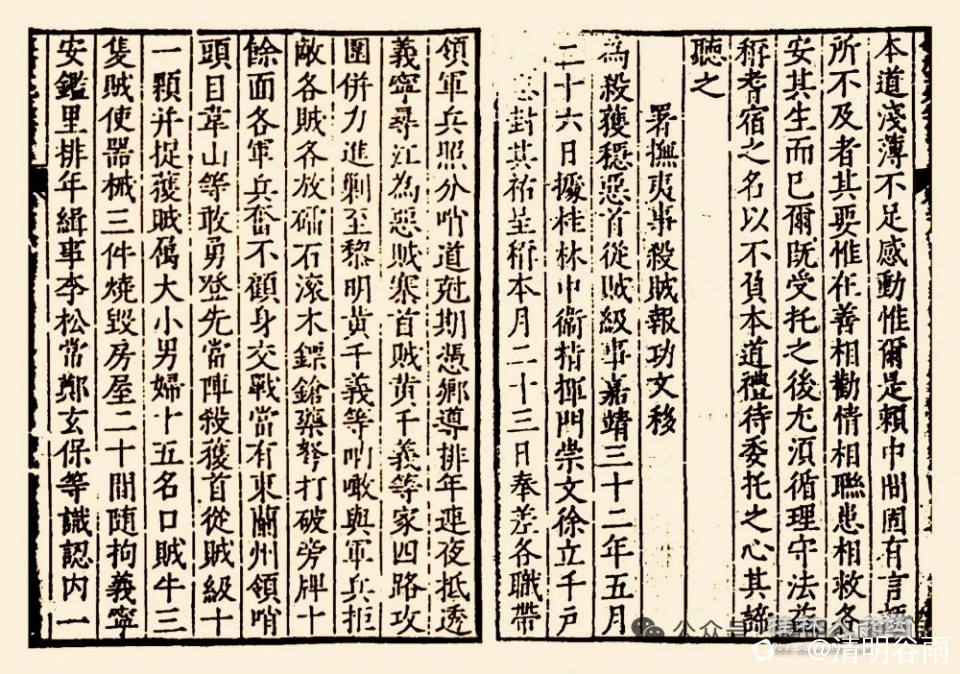 本道淺薄不足感動惟爾是賴中間固有言語
所不及者其要惟在善相勸情相聯患相救各
安其生而已爾既受托之後尤須循理守法益
稱耆宿之名以不負本道禮待委托之心其諦
聽之
署撫夷事殺賊報功文移
為殺獲穩惡首從賊級事嘉靖三十二年五月
二十六日據桂林中衛指揮門崇文徐立千戶
封其祐呈稱本月二十三日奉差各職帶
領軍兵照分哨道尅期憑鄉導排年連夜抵透
義寧尋江為惡賊寨首賊黃千義等家四路攻
圍併力進剿至黎明黃千義等吶噉與軍兵拒
敵各賊各放礌石滾木鏢鎗藥弩打破旁牌十
餘面各軍兵奮不顧身交戰當有東蘭州領哨
頭目韋山等敢勇登先當陣殺獲首從賊級十
一顆并捉獲賊屬大小男婦十五名口賊牛三
隻賊使器械三件燒毀房屋二十間隨拘義寧
安鑑里排年緝事李松當鄭玄保等識認內一
公众号
@清明谷雨